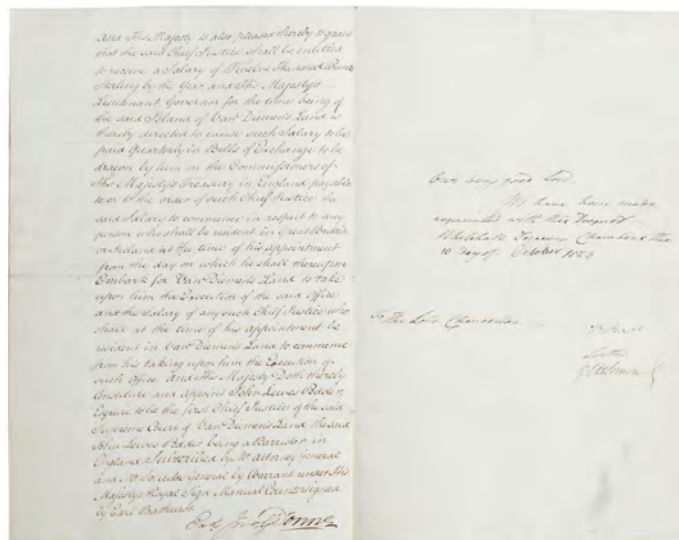 and His Majesty is also pleased thereby to grant
that the said Chief Justice shall be entitled
to receive a Salary of Twelve Hundred Pounds
Sterling by the Year and His Majesty's
Lieutenant Governor for the time being of
the said Island of Van Diemen's Land is
thereby directed to cause such Salary to be
paid Quarterly in Bills of Exchange to be
drawn by him on the Commissioners of
His Majesty's Treasury in England payable
to or to the order of such Chief Justice the
said Salary to commence in respect to any
person who shall be resident in Great Britain
or Ireland at the time of his appointment
from the day on which he shall thereupon
Embark for Van Diemen's Land to take
upon him the Execution of the said Office
and the Salary of any such Chief Justice who
shall at the time of his appointment be
resident in Van Diemen's Land to commence
from his taking upon him the Execution of
such office And His Majesty Doth thereby
Constitute and appoint John Lewes Pedder
Esquire to be the first Chief Justice of the said
Supreme Court of Van Diemen's Land the said
John Lewes Pedder being a Barrister in
England Subscribed by Mr Attorney General
and Mr Solicitor General by Warrant under His
Majesty's Royal Sign Manual Countersigned
by Earl Bathurst
Our very good Lord,
We have been made
acquainted with this Docquet
Whitehall Treasury Chambers this
10 day of October 1823
To The Lord Chancellor